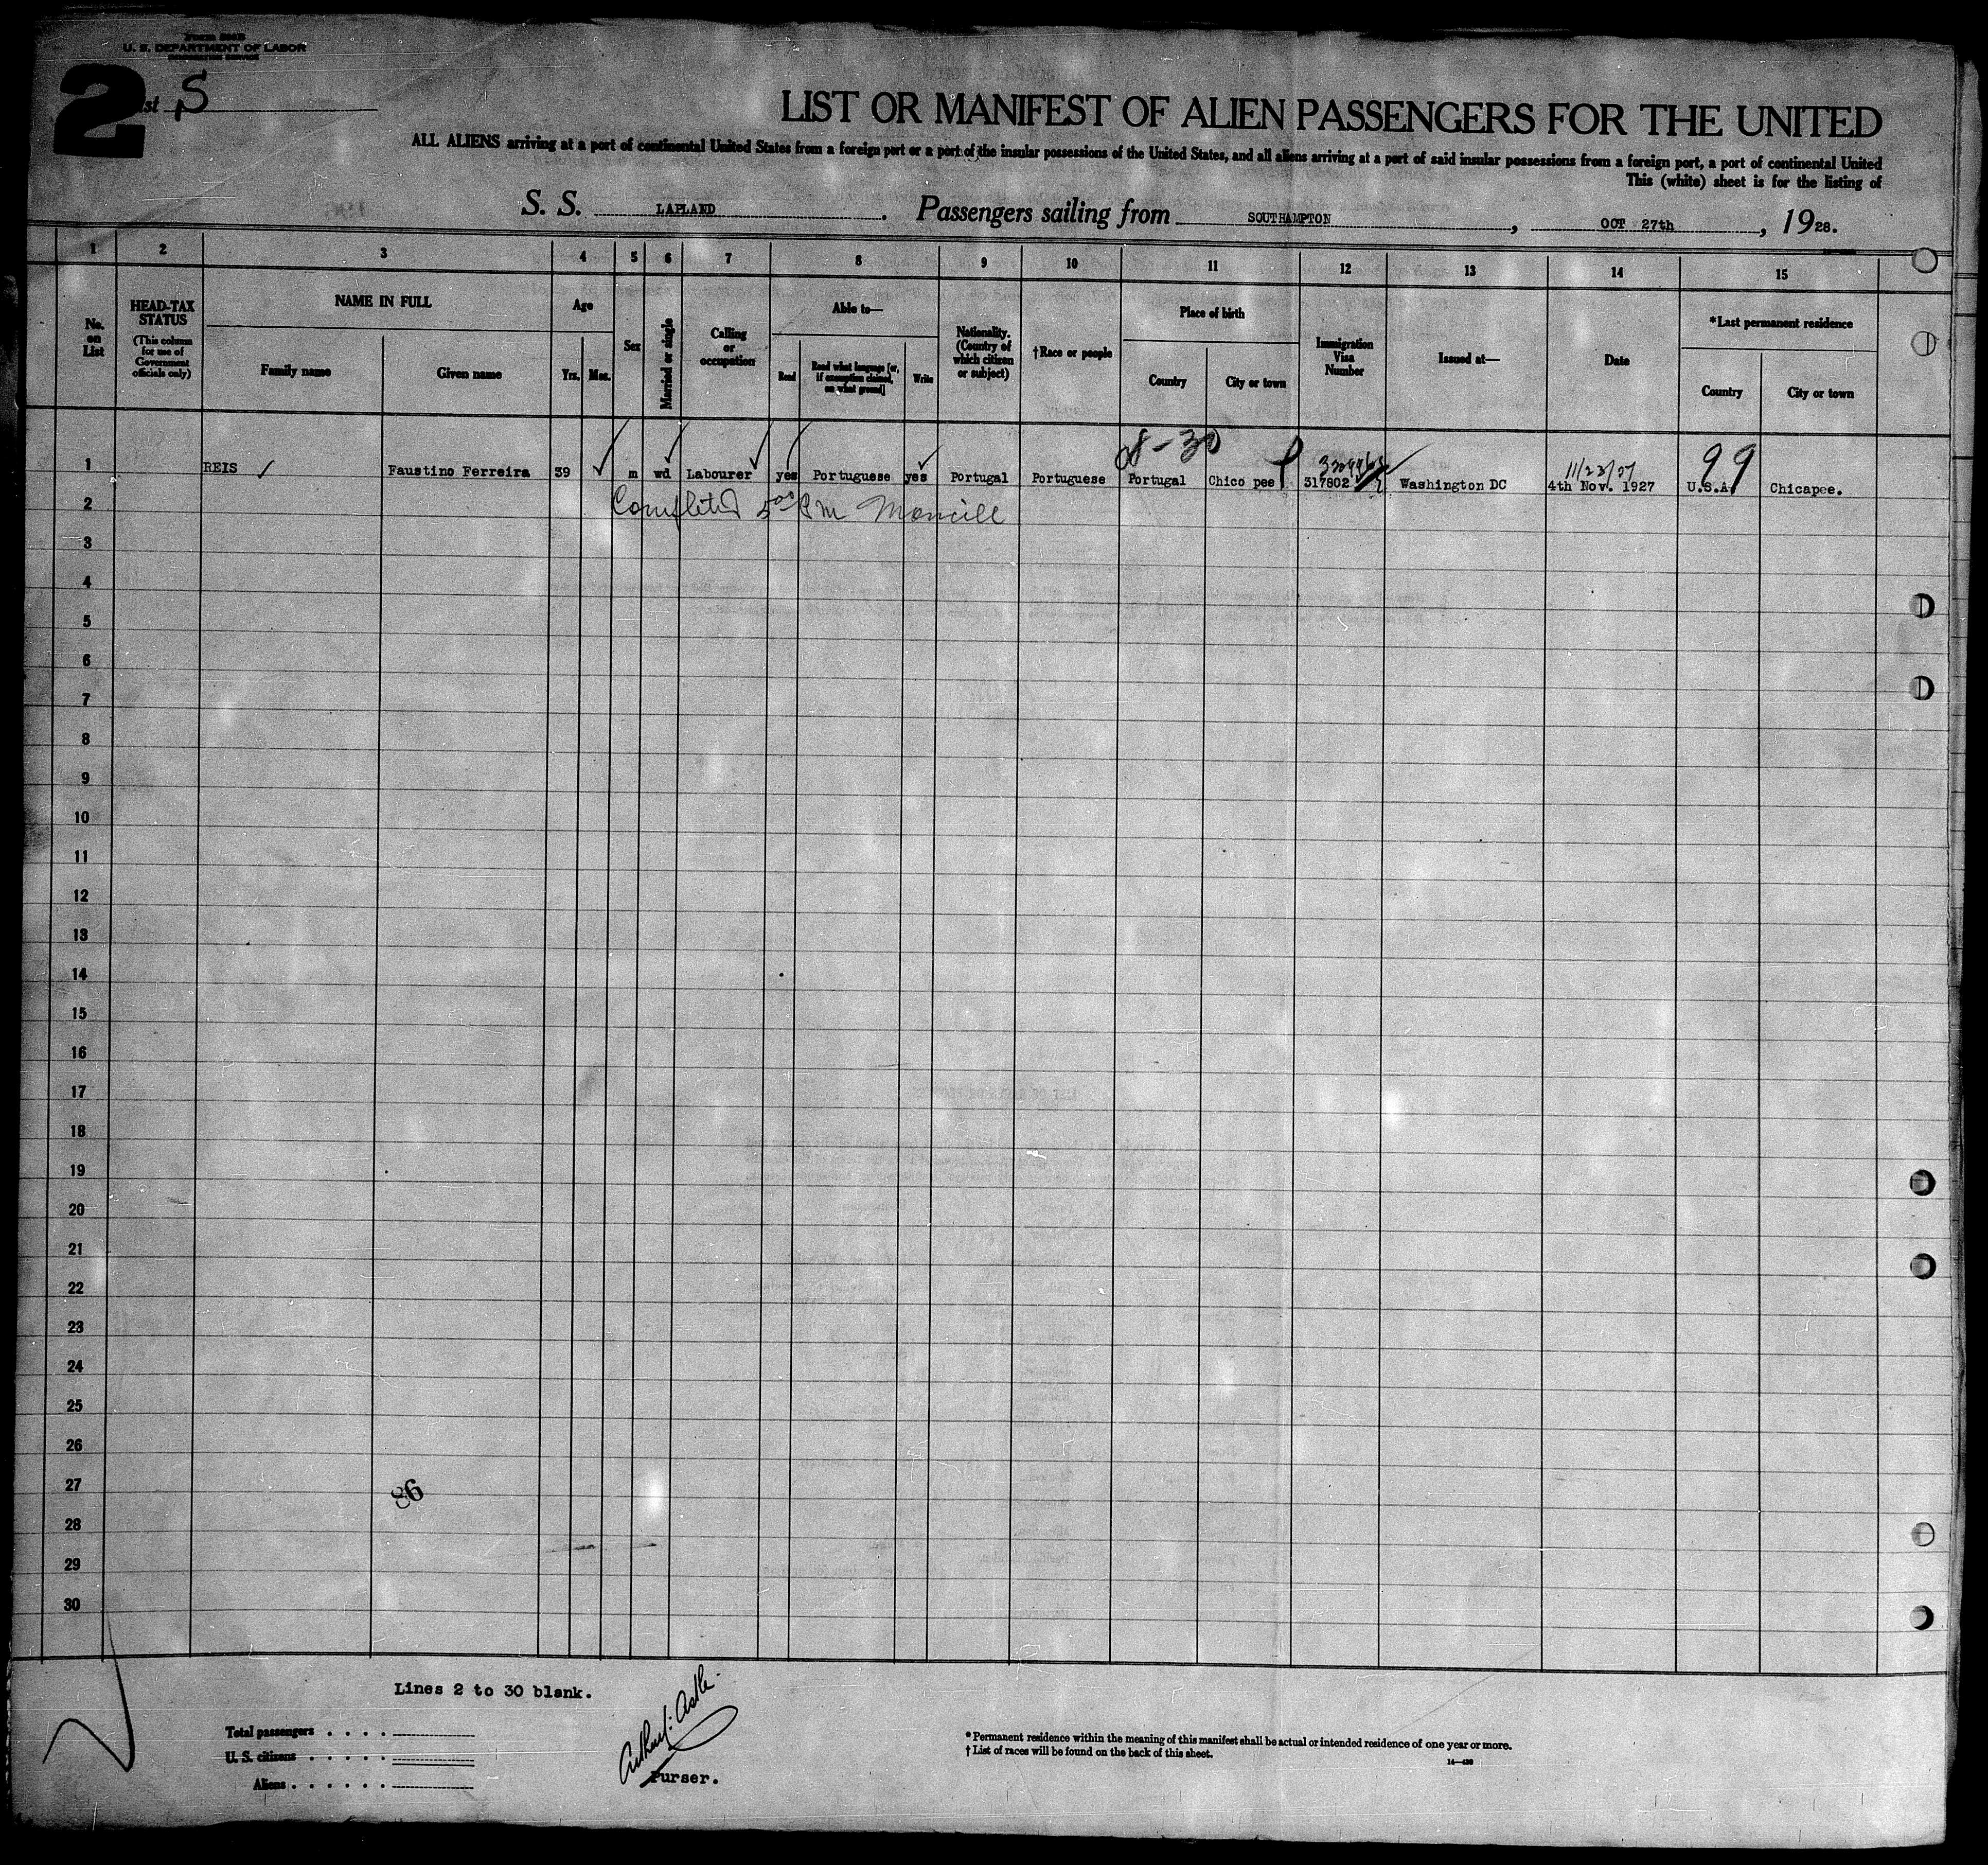 Form 500B
U. S. DEPARTMENT OF LABOR
IMMIGRATION SERVICE
2
List S
LIST OR MANIFEST OF ALIEN PASSENGERS FOR THE UNITED
ALL ALIENS arriving at a port of continental United States from a foreign port or a port of the insular possessions of the United States, and all aliens arriving at a port of said insular possessions from a foreign port, a port of continental United
This (white) sheet is for the listing of
S. S. LAPLAND. Passengers sailing from SOUTHAMPTON, OCT 27th, 1928.
1 2 3 4 5 6 7 8 9 10 11 12 13 14 15
No. on List
HEAD-TAX STATUS
(This column for use of Government officials only)
NAME IN FULL
Family name
Given name
Age
Yrs. Mos.
Sex
Married or single
Calling or occupation
Able to—
Read
Read what language [or, if exemption claimed, on what ground]
Write
Nationality. (Country of which citizen or subject)
†Race or people
Place of birth
Country
City or town
Immigration Visa Number
Issued at—
Date
*Last permanent residence
Country
City or town
8-30
11/23/27
99
1 REIS Faustino Ferreira 39 m wd Labourer yes Portuguese yes Portugal Portuguese Portugal Chico pee 317802 Washington DC 4th Nov. 1927 U.S.A. Chicapee.
2 Completed 5 00 Pm
3
4
5
6
7
8
9
10
11
12
13
14
15
16
17
18
19
20
21
22
23
24
25
26
27
86
28
29
30
Lines 2 to 30 blank.
Total passengers
U. S. citizens
Aliens
Purser.
*Permanent residence within the meaning of this manifest shall be actual or intended residence of one year or more.
†List of races will be found on the back of this sheet.